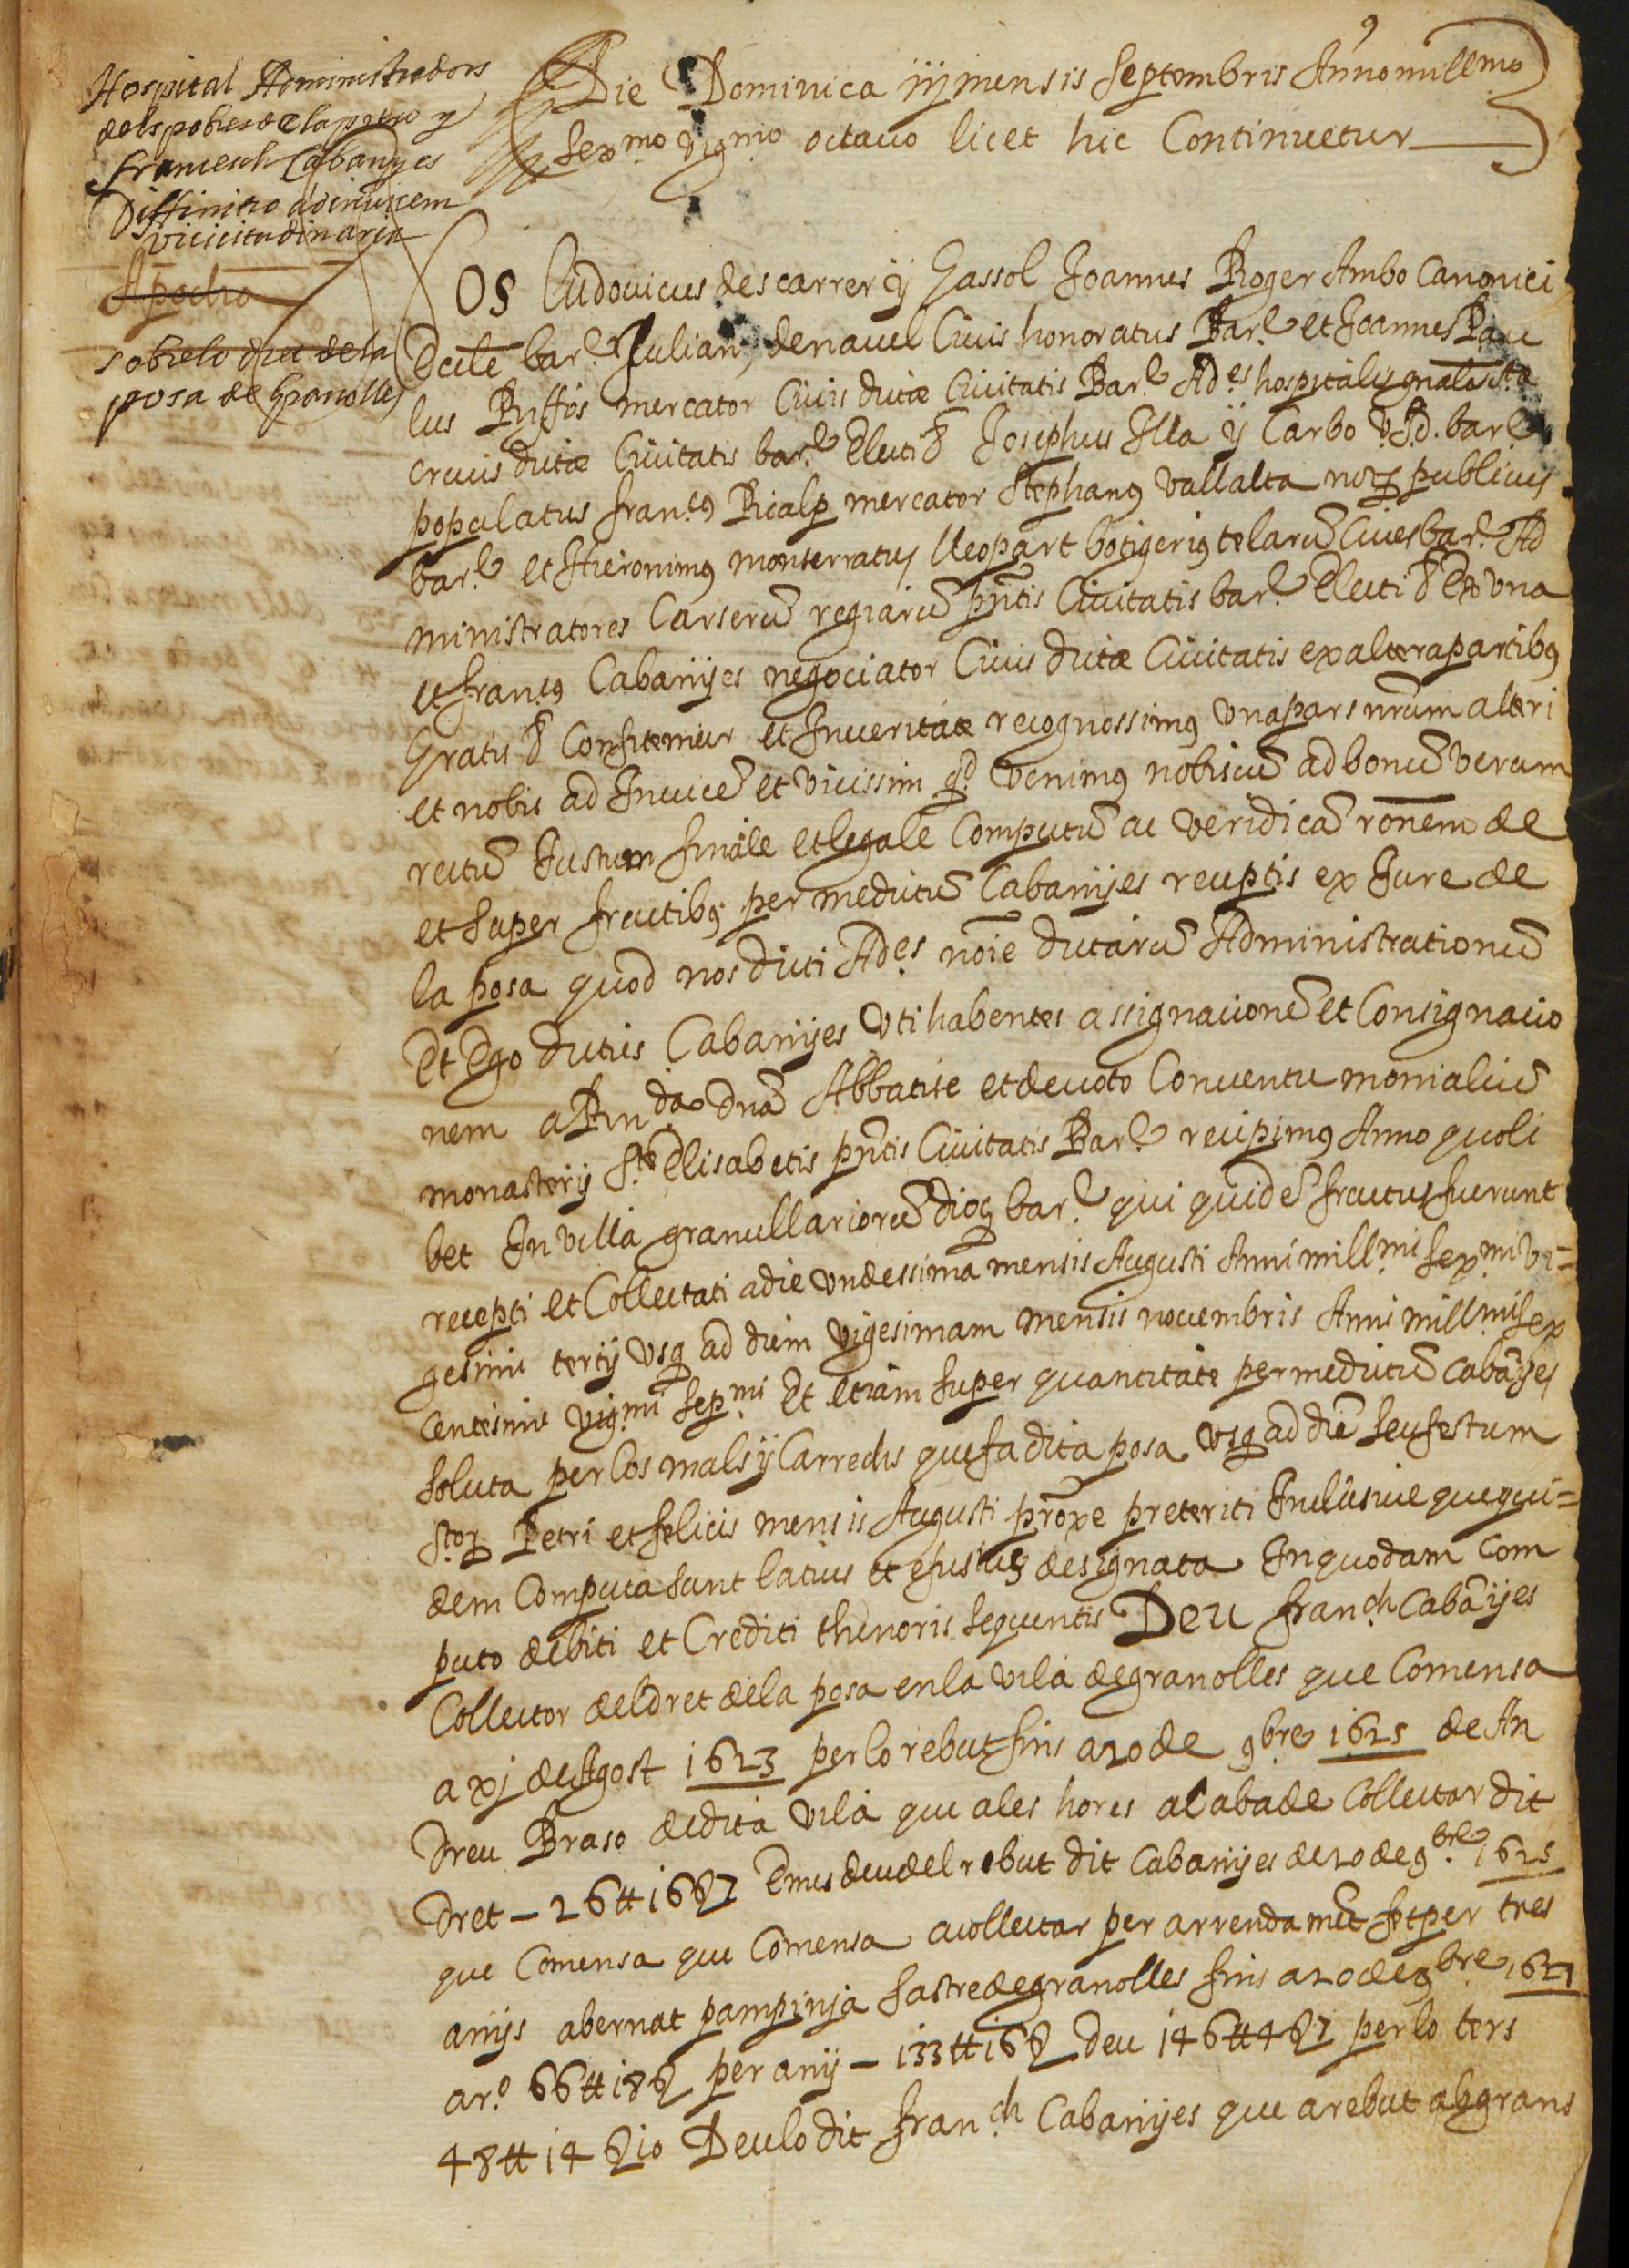 Hospital Administradors
dels pobres de la preso y
Francesch Cabanyes
Diffinitio adinuicem
vicicitudinaria
Apocha
sobre lo dret de la
posa de Granolles
Die Dominica iij mensis Septembris Anno millmo
Sexmo vigmo octauo licet hic Continuetur
Os Ludouicus descarrer y Gassol Joannes Roger Ambo Canonici
Eccle bar. Julianus denauel Ciuis honoratus Bar. et Joannes Pau
lus Ruffos mercator Ciuis dictæ Ciuitatis Bar. Ades hospitalis gnalis Stæ
crucis dictæ Ciuitatis bar. Electi Josephus Illa y Carbo V.J.d. bar.
populatus franus Rialp mercator Stephanus Vallalta nors publicus
bar. et Hieronimus monserratus lleopart botigerius telarū Ciues bar. Ad
ministratores Carserū regiarū pntis Ciuitatis bar. Electi Ex vna
et franus Cabanyes negociator Ciuis dictæ Ciuitatis ex altera partibus
Gratis Confitemur et In veritate recognossimus vna pars nrum alteri
et nobis ad Inuicē et vicissim qd venimus nobiscū ad bonū verum
rectū Justum finale et legale Computū ac veridicā ronem de
et super fructibus per me dictū Cabanyes receptis ex Jure de
la posa quod nos dicti Ades noie dictarū Administrationū
Et Ego dictus Cabanyes vti habentes assignacionē et Consignacio
nem a Rnda dna Abbatise et deuoto Conuentu monialiū
monasterij Ste Elisabetis pntis Ciuitatis Bar. recipimus Anno quoli
bet In villa granullariorū dioc bar. qui quidē fructus fuerunt
recepti et Collectati a die vndessima mensis Augusti Anni millmi sexmi vi=
gesimi tertij vsq ad diem vigesimam mensis nouembris Anni millmi sex
centesimi vigmi sepmi Et etiam super quantitate per me dictū Cabāyes
soluta per los mals y Carrechs que fa dita posa vsq ad diē seu festum
Stor Petri et felicis mensis Augusti prōxe preteriti Inclusiue que qui=
dem Computa sunt latius et efusius designata In quodam Com
puto debiti et Crediti thenoris sequentis Deu Franch Cabāyes
Collector del dret de la posa en la vila de granolles que Comensa
a xj de Agost 1623 per lo rebut fins a 20 de 9bre 1625 de An
dreu Braso de dita vila que ales hores acabade Collectar dit
Dret — 26 tt 16 ß 7 Emes deu del rebut dit Cabanyes de 20 de 9bre 1625
que Comensa que Comensa a collectar per arrendamēt fet per tres
anys a bernat pampinya sastre de granolles fins a 20 de 9bre 1627
aro 66 tt 18 ß per any — 133 tt 16 ß Deu 146 tt 4 ß 7 per lo ters
48 tt 14 ß 10 Deu lo dit Franch Cabanyes que a rebut ab grans